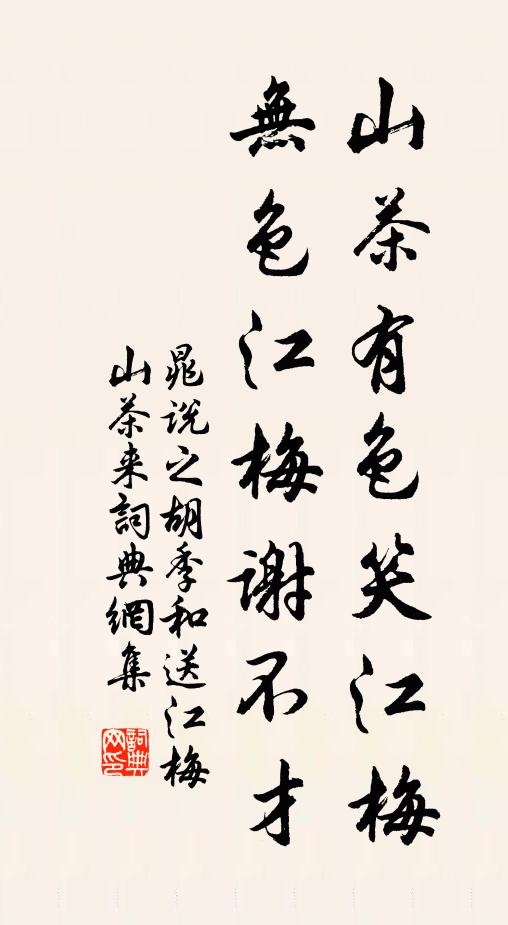 山茶有色笑江梅
無色江梅謝不才
晁說之胡季和送江梅
山茶来詞典網集
詞典网印